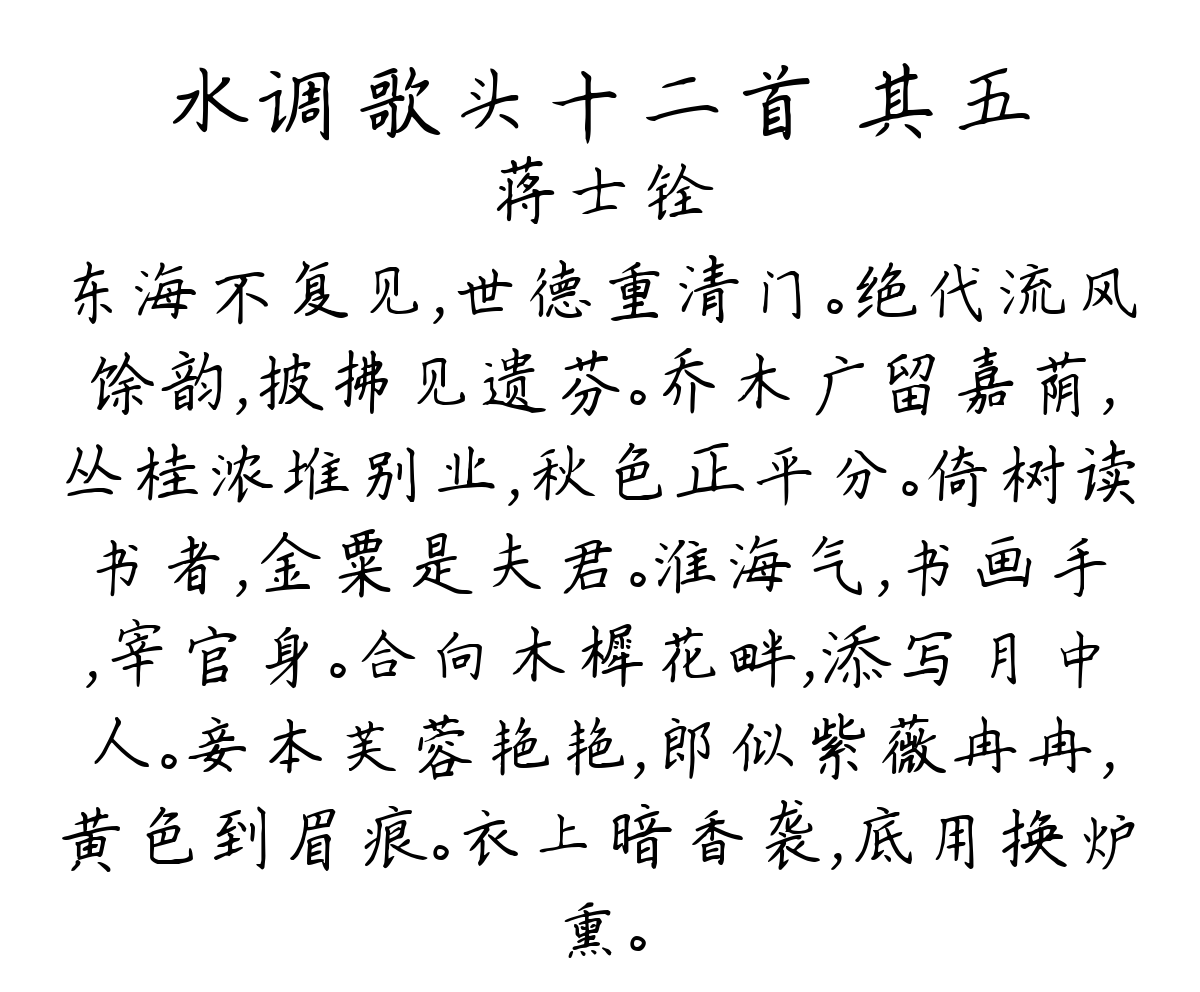 水调歌头十二首 其五
蒋士铨
东海不复见,世德重清门。绝代流风
馀韵,披拂见遗芬。乔木广留嘉荫,
丛桂浓堆别业,秋色正平分。倚树读
书者,金粟是夫君。淮海气,书画手
,宰官身。合向木樨花畔,添写月中
人。妾本芙蓉艳艳,郎似紫薇冉冉,
黄色到眉痕。衣上暗香袭,底用换炉
熏。